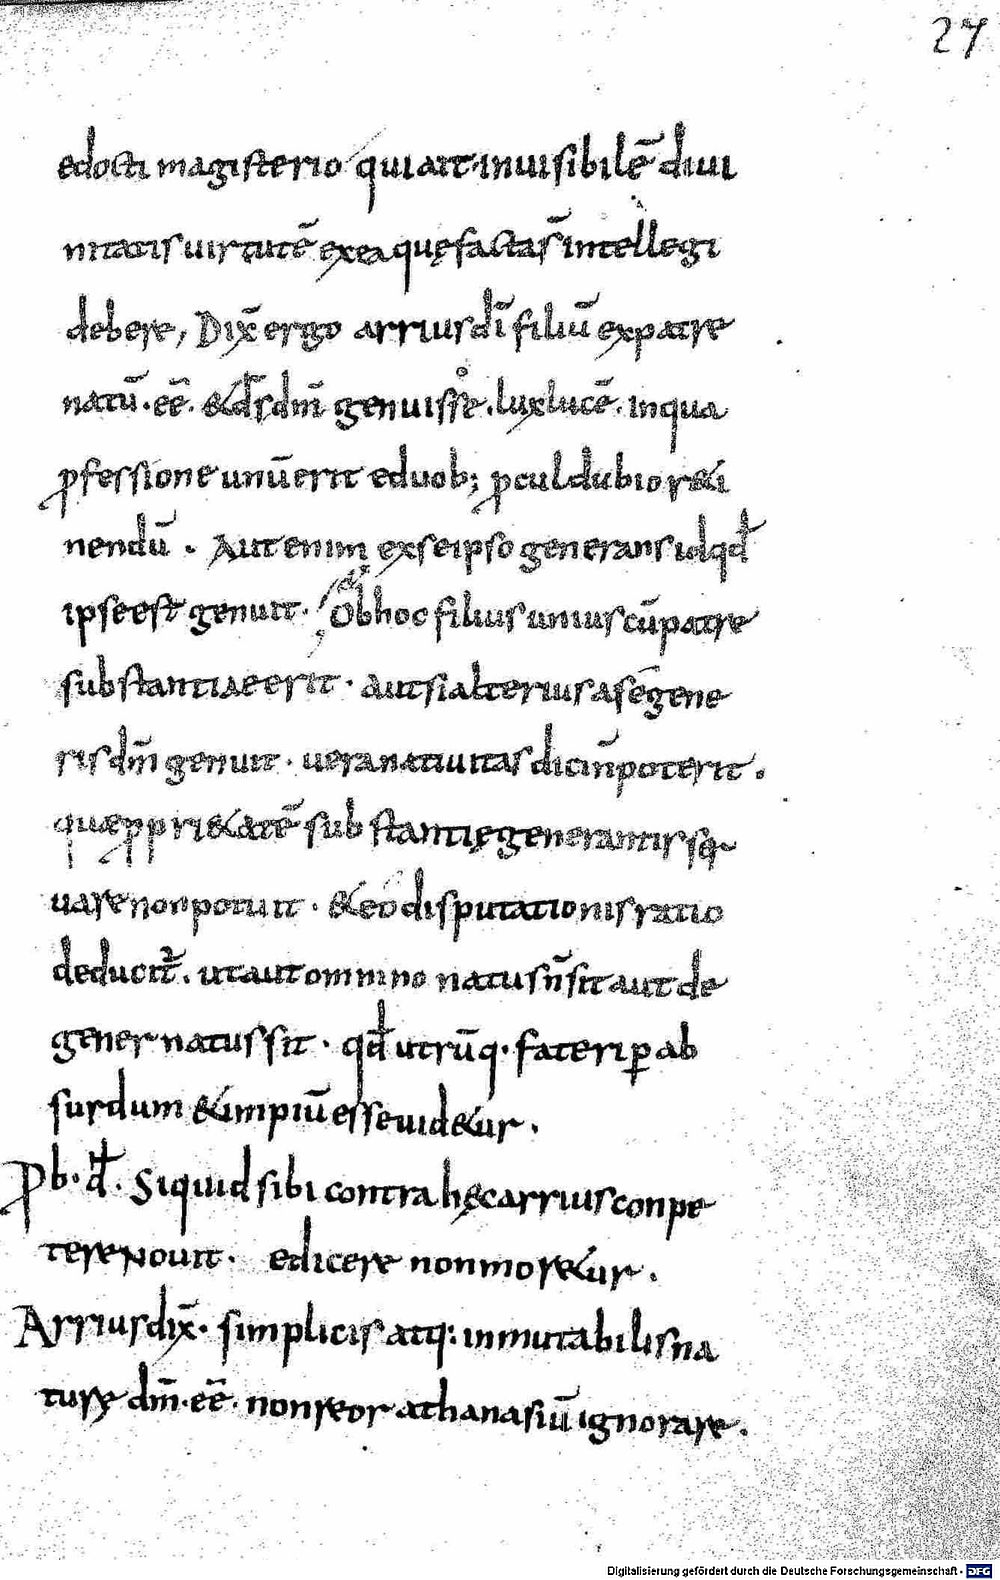 27
edocti magisterio qui ait· invisibilē divi
nitatis virtutē ex ea quę facta s̄ intellegi
debere, Dix̄ ergo arrius dī filiū ex patre
natū· eē· & d̄s dm̄ genuisse· lux lucē· in qua
ꝓfessione unū erit e duob; ꝓcul dubio r&i
nendū· Aut enim ex se ipso generans id qd̄
ipse est genuit· Et Ob hoc filius unius cū patre
substantiae erit· aut si alterius a se gene
ris dm̄ genuit· vera nativitas dici n̄ poterit·
quae ꝓpri&atē substantię generantis ser
vare non potuit· & eo disputationis ratio
deducit̄· ut aut omnino natus n̄ sit aut de
gener natus sit· qd̄ utrūq· fateri ꝑ ab
surdum & impiū esse vid&ur·
Prob· d̄· Siquid sibi contra hęc arrius conpe
tere novit· edicere non mor&ur·
Arrius dix̄· simplicis atq: inmutabilis na
turę dm̄· eē· non reor athanasiū ignorare·
Digitalisierung gefördert durch die Deutsche Forschungsgemeinschaft - DFG